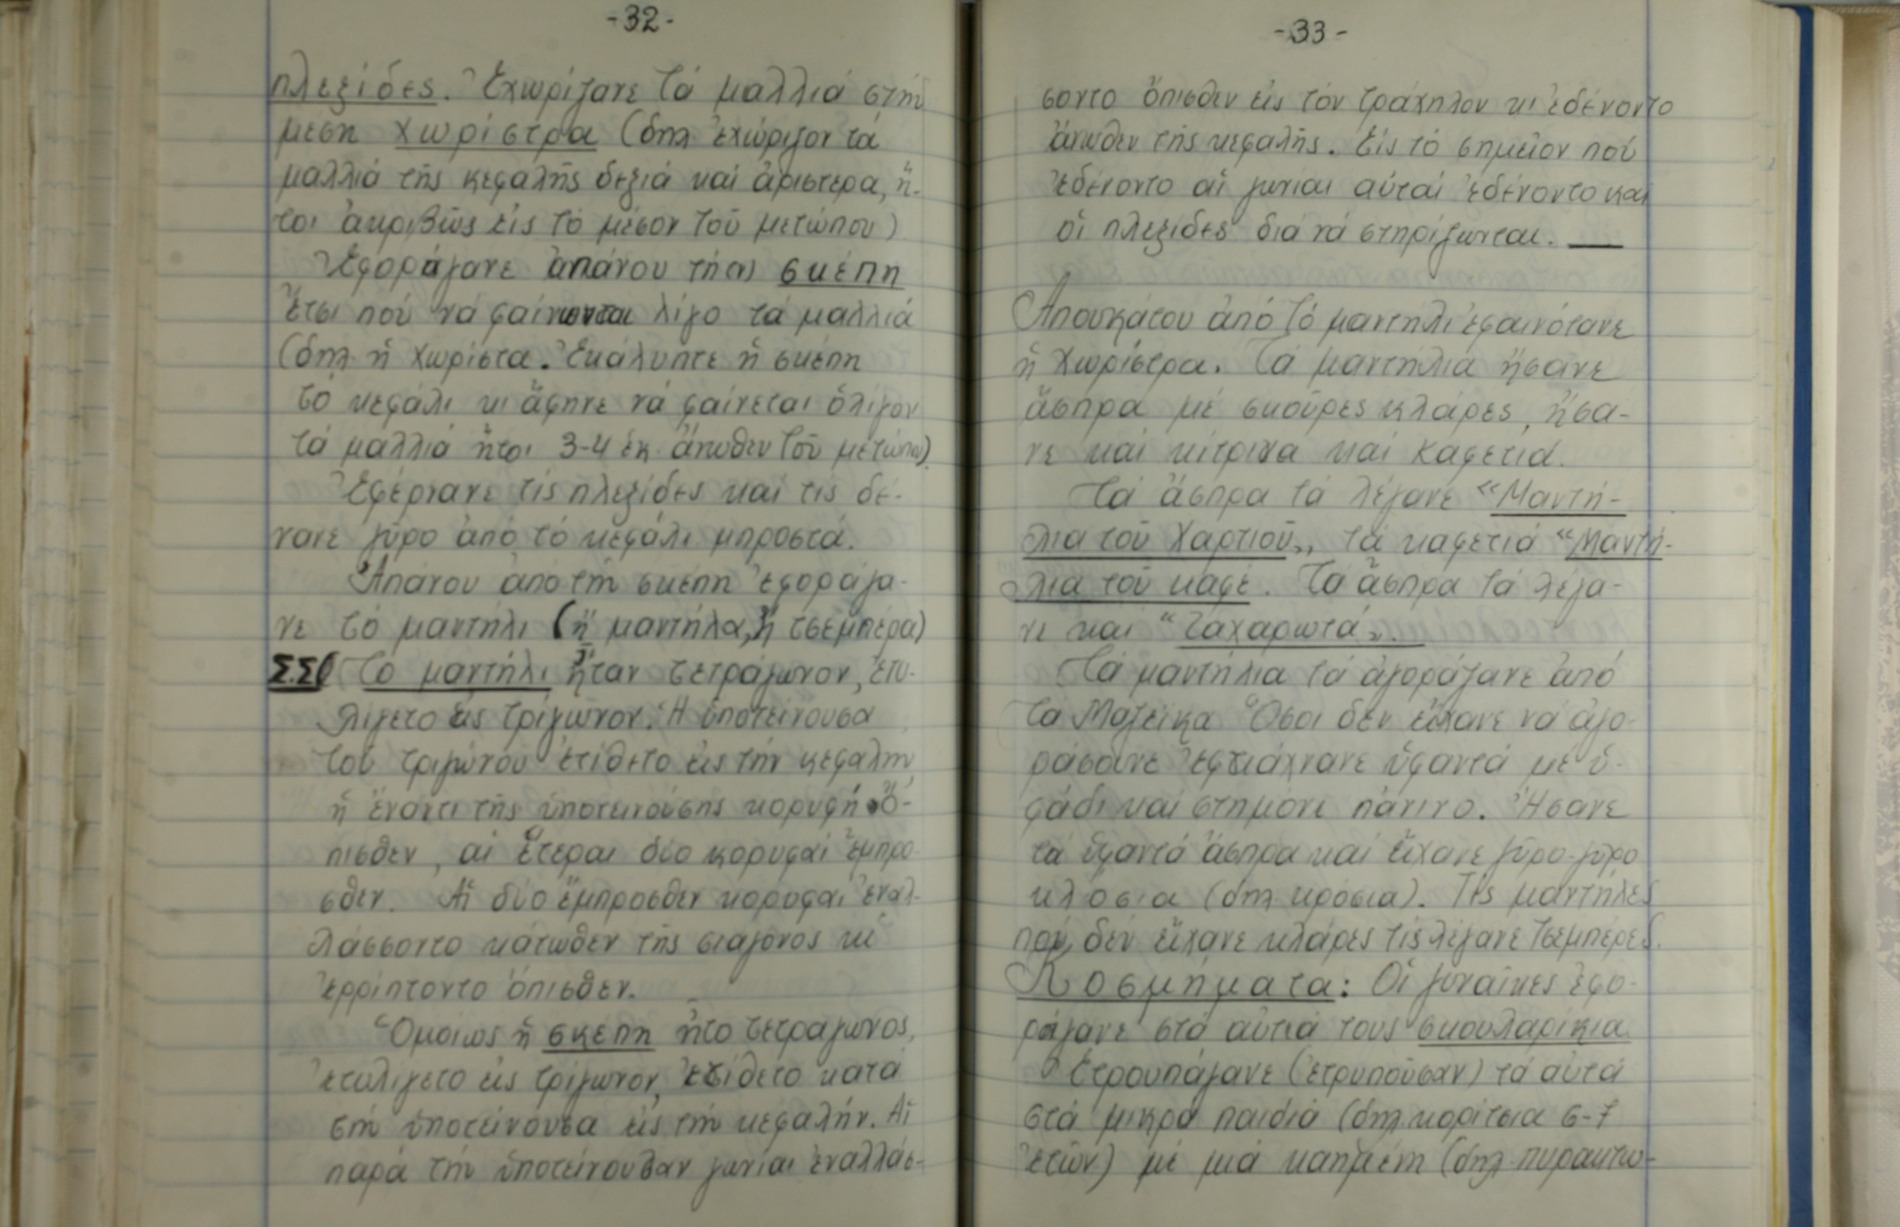 -32-
πλεξίδες. Ἐχωρίζανε τά μαλλιά στήν
μέση χωρίστρα (δηλ. ἐχώριζον τά
μαλλιά τῆς κεφαλῆς δεξιά καί ἀριστερα, ἤ-
τοι ἀκριβῶς εἰς τό μέσον τοῦ μετώπου)
Ἐφοράγανε ἀπάνου τήν σκέπη
ἔτσι πού νά φαίνωνται λίγο τά μαλλιά
(δηλ. ἡ χωρίστα. Ἐκάλυπτε ἡ σκέπη
τό κεφάλι κι ἄφηνε νά φαίνεται ὀλίγον
τά μαλλιά ἤτοι 3-4 ἑκ. ἄνωθεν τοῦ μετώπου).
Ἐφέρνανε τίς πλεξίδες καί τίς δέ-
νανε γῦρο ἀπό τό κεφάλι μπροστά.
Ἀπάνου ἀπό τήν σκέπη ἐφοράγα-
νε τό μαντήλι (ἤ μαντήλα, ἤ τσεμπέρα)
Σ.Σ( Τό μαντήλι ἦταν τετράγωνον, ἐτυ-
λίγετο εἰς τρίγωνον. Ἡ ὑποτείνουσα
τοῦ τριγώνου ἐτίθετο εἰς τήν κεφαλήν,
ἡ ἔναντι τῆς ὑποτεινούσης κορυφή ὄ-
πισθεν, αἱ ἕτεραι δύο κορυφαί ἔμπρο-
σθεν. Αἱ δύο ἔμπροσθεν κορυφαί ἐναλ-
λάσσοντο κάτωθεν τῆς σιαγόνος κι
ἐρρίπτοντο ὄπισθεν.
Ὁμοίως ἡ σκέπη ἦτο τετράγωνος,
ἐτυλίγετο εἰς τρίγωνον, ἐτίθετο κατά
τήν ὑποτείνουσα εἰς τήν κεφαλήν. Αἱ
παρά τήν ὑποτείνουσαν γωνίαι ἐναλλάσ-
-33-
σοντο ὄπισθεν εἰς τόν τράχηλον κι ἐδένοντο
ἄνωθεν τῆς κεφαλῆς. Εἰς τό σημεῖον πού
ἐδένοντο αἱ γωνιαι αὐταί ἐδένοντο και
οἱ πλεξίδες διά νά στηρίζωνται.
Ἀπουκάτου ἀπό τό μαντήλι ἐφαινότανε
ἡ χωρίστρα. Τά μαντήλια ἤσανε
ἄσπρα μέ σκοῦρες κλάρες, ἤσα-
νε καί κίτρινα καί καφετιά.
Τά ἄσπρα τά λέγανε "Μαντή-
λια τοῦ Χαρτιοῦ", τά καφετιά "Μαντή-
λια τοῦ καφέ. Τά ἄσπρα τά λέγα-
νε καί "ζαχαρωτά".
Τά μαντήλια τά ἀγοράζανε ἀπό
τα Μαζέικα Ὅσοι δεν εἴχανε νά ἀγο-
ράσουνε ἐφτιάχνανε ὑφαντά μέ ὑ-
φάδι καί στημόνι πάνινο. Ἤσανε
τά ὑφαντά ἄσπρα καί εἴχανε γῦρο-γῦρο
κλόσια (δηλ. κρόσια). Τίς μαντήλες
πού δέν εἴχανε κλάρες τίς λέγανε Τσεμπέρες.
Κοσμήματα: Οἱ γυναῖκες ἐφο-
ράγανε στά αὐτιά τους σκουλαρίκια
Ἐτρουπάγανε (ἐτρυποῦσαν) τά αὐτά
στά μικρά παιδιά (δηλ. κορίτσια 6-7
ἐτῶν) μέ μιά (δηλ. πυρακτω-